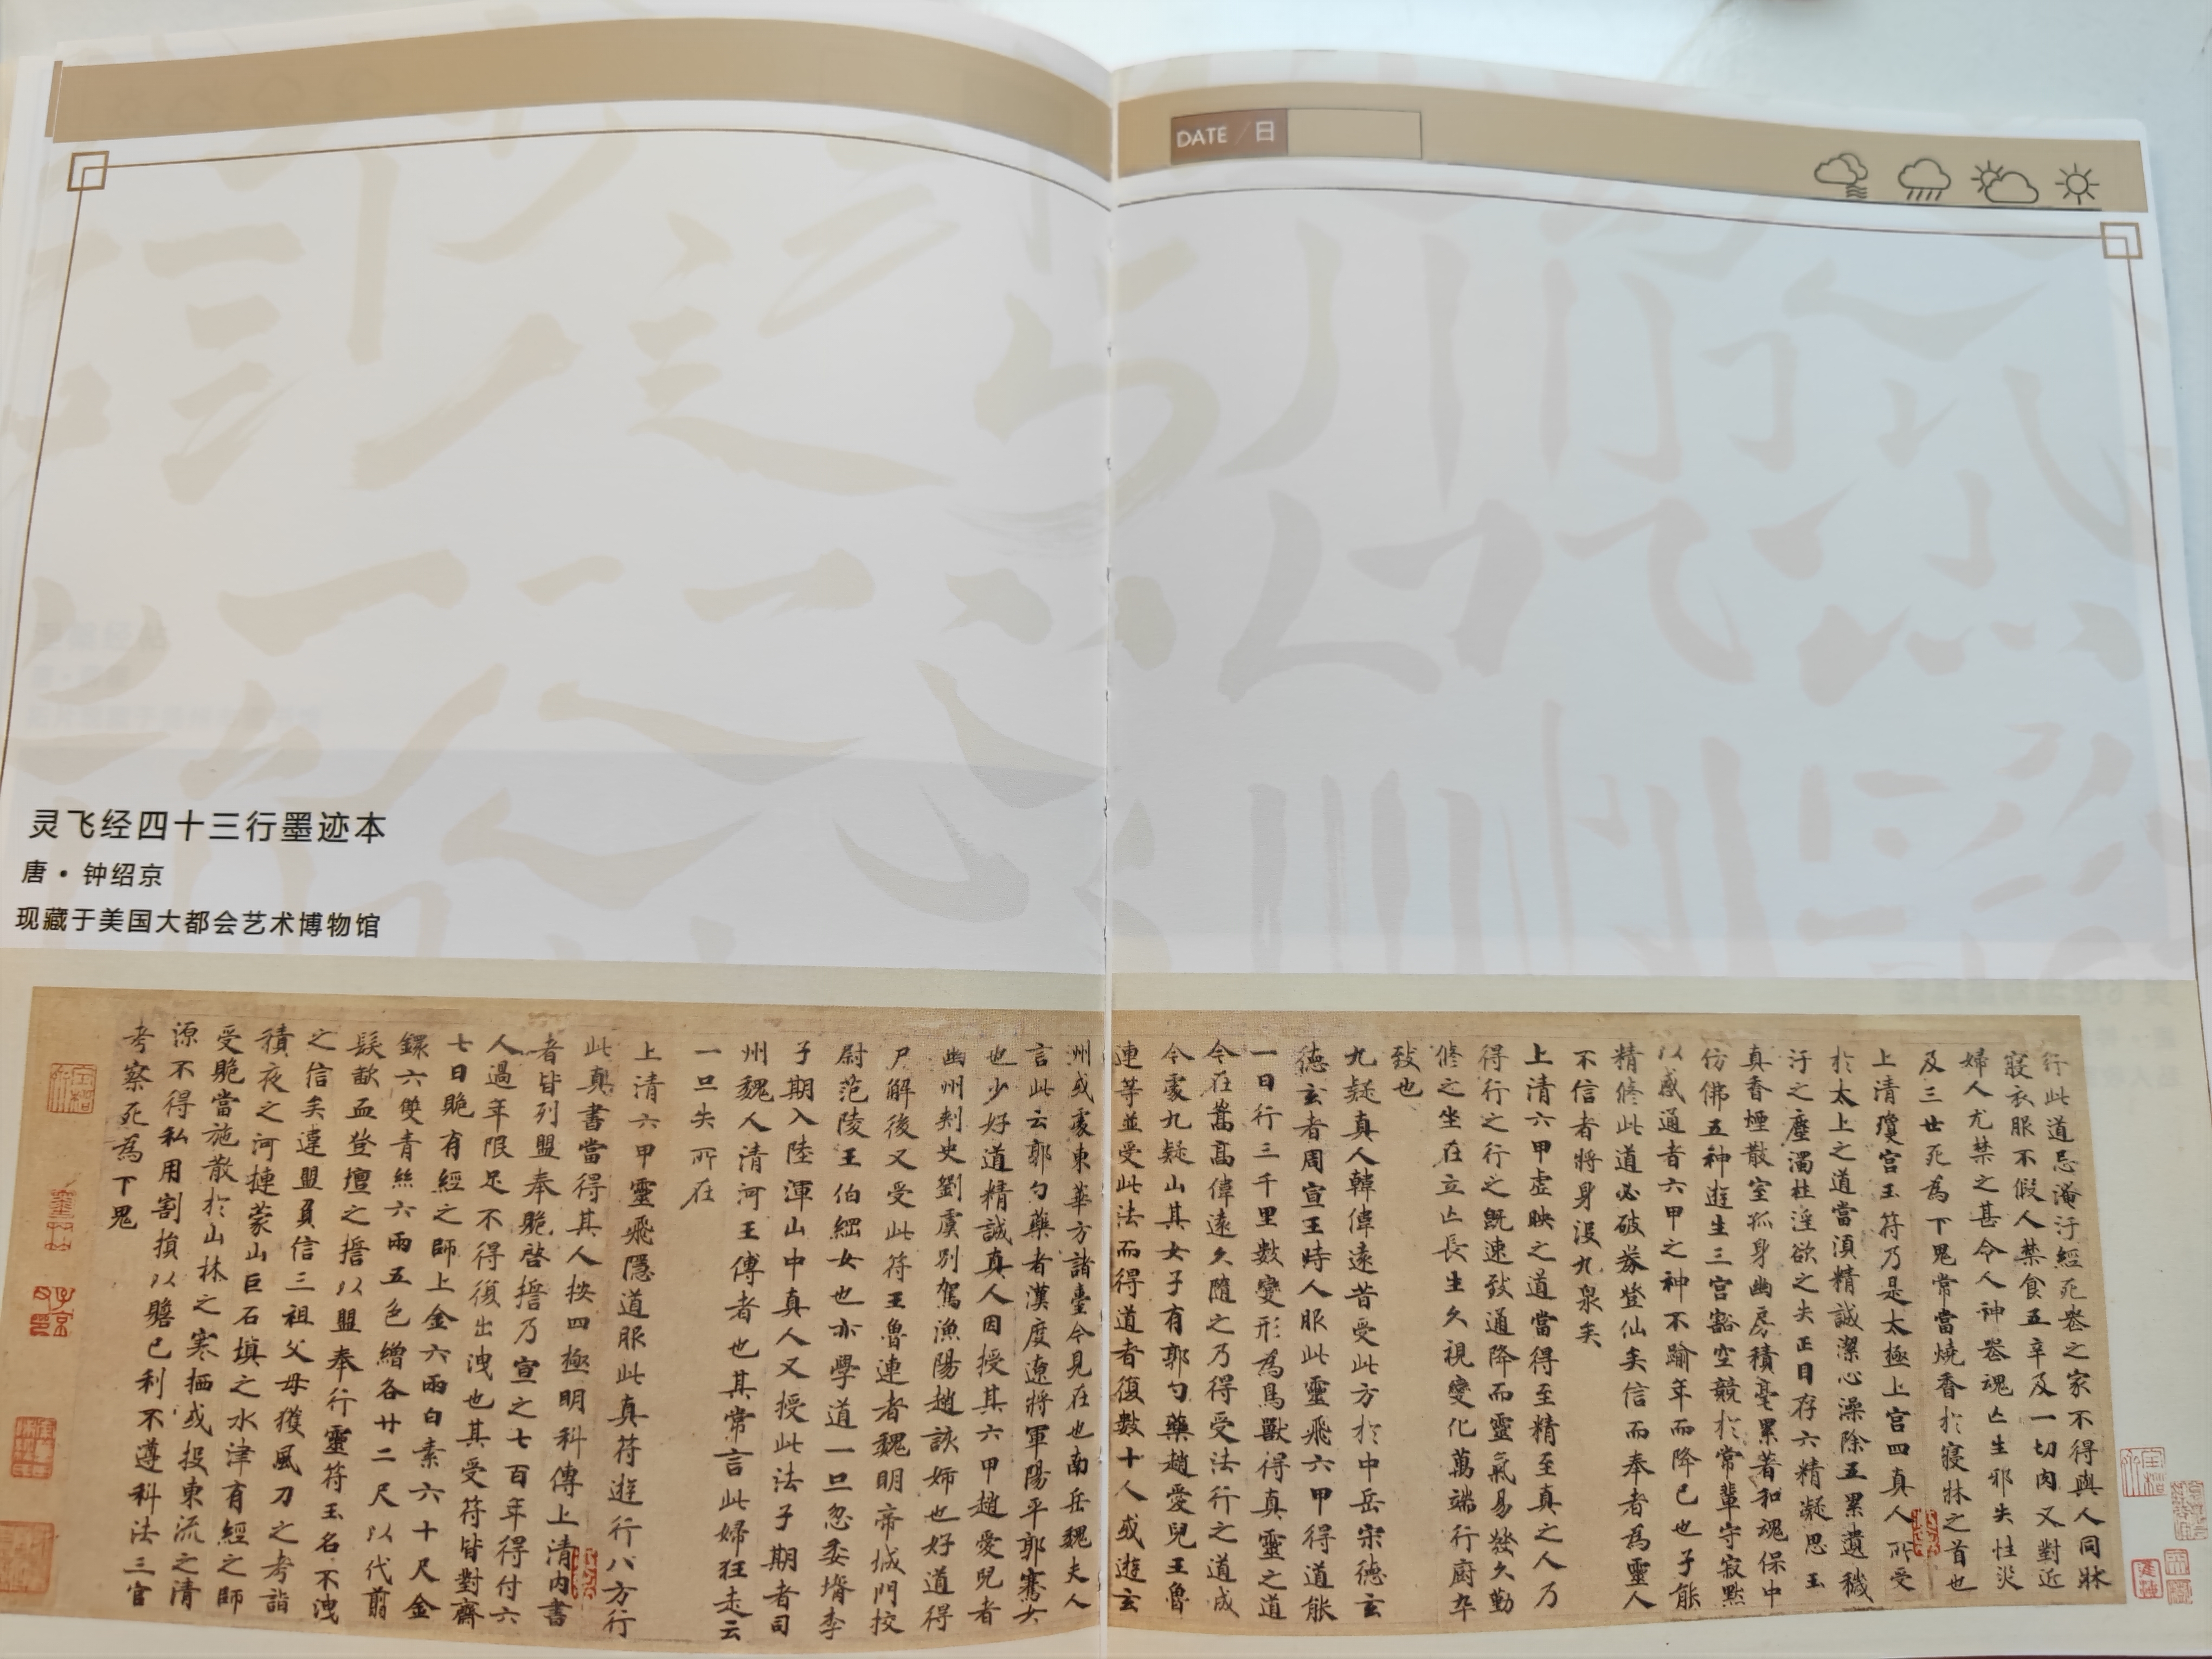 DATE / 日
灵飞经四十三行墨迹本
唐・钟绍京
现藏于美国大都会艺术博物馆
行此道忌淹汙經死喪之家不得與人同牀
寢衣服不假人禁食五辛及一切肉又對近
婦人尤禁之甚令人神喪魂亡生邪失性災
及三世死為下鬼常當燒香於寢牀之首也
上清瓊宮玉符乃是太極上宮四真人所受
於太上之道當須精誠潔心澡除五累遺穢
汙之塵濁杜淫欲之失正目存六精凝思玉
真香煙散室孤身幽房積毫累著和魂保中
仿佛五神遊生三宮豁空競於常輩守寂默
以感通者六甲之神不踰年而降己也子能
精修此道必破券登仙矣信而奉者為靈人
不信者將身沒九泉矣
上清六甲虛映之道當得至精至真之人乃
得行之行之既速致通降而靈氣易發久勤
修之坐在立亡長生久視變化萬端行廚卒
致也
九疑真人韓偉遠昔受此方於中岳宋德玄
德玄者周宣王時人服此靈飛六甲得道能
一日行三千里數變形為鳥獸得真靈之道
今在嵩高偉遠久隨之乃得受法行之道成
今處九疑山其女子有郭勺藥趙愛兒王魯
連等並受此法而得道者復數十人或遊玄
洲或處東華方諸臺今見在也南岳魏夫人
言此云郭勺藥者漢度遼將軍陽平郭騫女
也少好道精誠真人因授其六甲趙愛兒者
幽州刺史劉虞別駕漁陽趙該姊也好道得
尸解後又受此符王魯連者魏明帝城門校
尉范陵王伯綱女也亦學道一旦忽委壻李
子期入陸渾山中真人又授此法子期者司
州魏人清河王傅者也其常言此婦狂走云
一旦失所在
上清六甲靈飛隱道服此真符遊行八方行
此真書當得其人按四極明科傳上清內書
者皆列盟奉跪啓誓乃宣之七百年得付六
人過年限足不得復出洩也其受符皆對齋
七日賝有經之師上金六兩白素六十尺金
鐶六雙青絲六兩五色繒各廿二尺以代翦
髮歃血登壇之誓以盟奉行靈符玉名不洩
之信矣違盟負信三祖父母獲風刀之考詣
積夜之河摙蒙山巨石填之水津有經之師
受賝當施散於山林之寒栖或投東流之清
源不得私用割損以贍己利不遵科法三官
考察死為下鬼